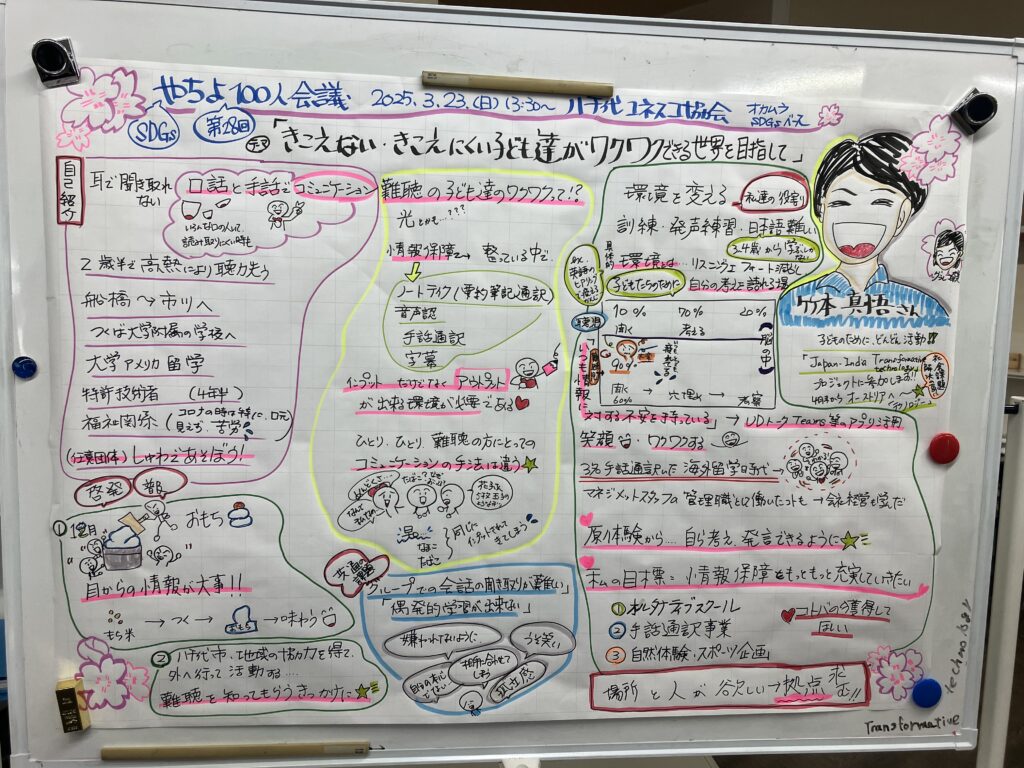 やちよ100人会議 2025.3.23.(日)13:30~ 八千代ユネスコ協会
オカムラ
SDGsパース
SDGs 第28回
「きこえない・きこえにくい子ども達がワクワクできる世界を目指して」
自己紹介
耳で聞き取れない
口話と手話でコミュニケーション
いろんな口の人がいて
読み取りにくい時も
2歳半で高熱により聴力失う
船橋→市川へ
つくば大学附属の学校へ
大学アメリカ留学
特許技術者 (4年半)
福祉関係 (コロナの時は特に、口元
見えず、苦労)
(任意団体)しゅわであそぼう!
啓発
① 12月 おもち
目からの情報が大事!!
もち米 → つく → おもち → 味わう
② 八千代市、地域の協力を得て、
外へ行って活動する…
難聴を知ってもらうきっかけに
難聴の子ども達のワクワクって!?
光とかも…???
情報保障で→整っている中で…
ノートテイク(要約筆記通訳)
音声認
手話通訳
字幕
インプットだけでなくアウトプット
が出来る環境が必要である
ひとり、ひとり、難聴の方にとっての
コミュニケーションの手法は違う
たまご
なまこ
たばこ
同じに
インプットされて
きてしまう
共通の課題
グループでの会話の聞き取りが難しい
「偶発的学習が出来ない」
嫌われてないように
うそ笑い
相手に合わせて
しまう
孤立感
環境を変える 私達の役割
訓練・発声練習・日本語難しい
3.4歳から
具体的
環境とは… リスニング
子どもたちのために 自分の考えを語れる場
10% 70% 20%
聞く 考える
脳の中
聴児
90%
聞く → 穴埋め → 考察
60%
いつも情報に
対する不安を持っている → UDトーク Teams等のアプリ活用
笑顔・ワクワクする
3名手話通訳して 海外留学時代→
マネジメントスタッフの管理職として働いたことも → 会社経営も学んだ
原体験から… 自ら考え、発言できるように
私の目標= 情報保障をもっともっと充実していきたい
① オルタナティブスクール
② 手話通訳事業
③ 自然体験・スポーツ企画
コトバの獲得して
ほしい
場所と人が欲しい→拠点求む!!
竹本 真悟さん
子どものために、どんどん活動!!!
「Japan-India Transformative
technology」
プロジェクトに参加します!!
4月から オーストリアへ
technology
Transformative